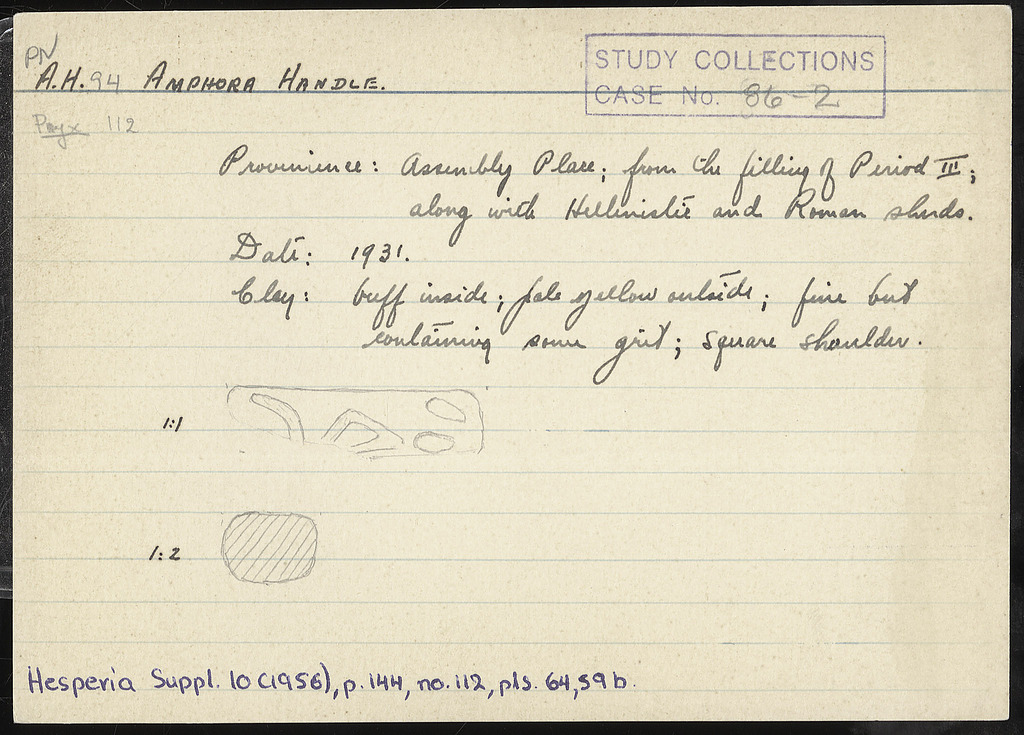 PN
A.H. 94 AMPHORA HANDLE.
STUDY COLLECTIONS
CASE No. 86-2
Pnyx 112
Provenience: Assembly Place; from the filling of Period III;
along with Hellenistic and Roman sherds.
Date: 1931.
Clay: buff inside; pale yellow outside; fine but
containing some grit; square shoulder.
1:1
1:2
Hesperia Suppl. 10 (1956), p. 144, no. 112, pls. 64, 59 b.